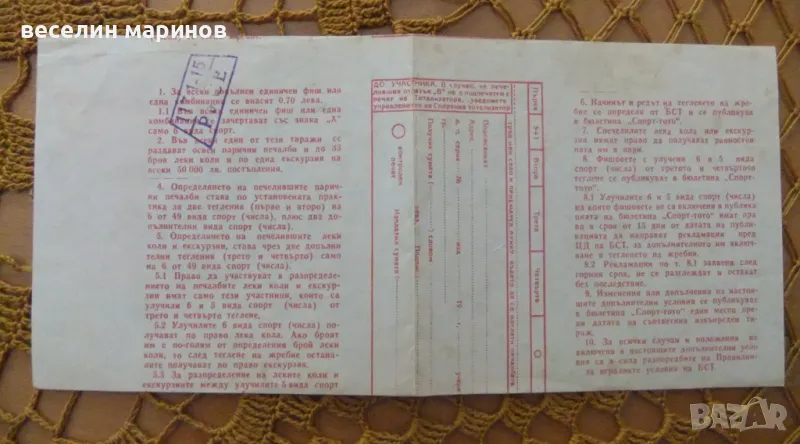 веселин маринов
1. За всеки попълнен единичен фиш или
една комбинация се внасят 0.70 лева.
1.1. Във всеки единичен фиш или една
комбинация се зачертават със знака „Х"
само 6 вида спорт.
2. Във всеки един от тези тиражи се
раздават освен парични печалби и до 33
броя леки коли и по една екскурзия на
всеки 50 000 лв. постъпления.
4. Определянето на печелившите парич-
ни печалби става по установената практи-
ка за две тегления (първо и второ) на
6 от 49 вида спорт (числа), плюс два до-
пълнителни вида спорт (числа).
5. Определянето на печелившите леки
коли и екскурзии, става чрез две допълни-
телни тегления (трето и четвърто) само
на 6 от 49 вида спорт (числа).
5.1 Право да участвуват в разпределе-
нието на печалбите леки коли и екскур-
зии имат само тези участници, които са
улучили 6 и 5 вида спорт (числа) от
трето и четвърто теглене.
5.2. Улучилите 6 вида спорт (числа) по-
лучават по право лека кола. Ако броят
им е по-голям от определения брой леки
коли, то след теглене на жребие остана-
лите получават по право екскурзия.
5.3 За разпределение на леките коли и
екскурзиите между улучилите 5 вида спорт
ДО УЧАСТНИКА. В случай, че пече-
лившия от фиш „В" не е подпечатен с
печат на Тотализатора, уведомете
управлението на Спортния тотализатор
Първа
5+1
Втора
Трета
Четвърта
Подписаният
Адрес
л. п. серия № изд. 19 г.
Получих сумата
лева
Изплатил сумата
контролен
печат
6. Начинът и редът на тегленето на жре-
бие се определя от БСТ и се публикува
в бюлетина „Спорт-тото".
7. Спечелилите лека кола или екскур-
зия нямат право да получават равностой-
ната им в пари.
8. Фишовете с улучени 6 и 5 вида
спорт (числа) от третото и четвъртото
теглене се публикуват в бюлетина „Спорт-
тото".
8.1 Улучилите 6 и 5 вида спорт (числа)
на които фишовете не са включени в публика-
цията на бюлетина „Спорт-тото" имат пра-
во в срок от 15 дни от датата на публика-
цията да направят рекламация пред
ЦД на БСТ, за допълнителното им включва-
не в тегленето на жребия.
8.2 Рекламации по т. 8.1 заявени след
горния срок, не се разглеждат и остават
без последствия.
9. Изменения или допълнения на настоя-
щите допълнителни условия се публикуват
в бюлетина „Спорт-тото" един месец пре-
ди датата на съответния извънреден ти-
раж.
10. За всички случаи и положения не
включени в настоящите допълнителни усло-
вия са в сила разпоредбите на Правилни-
ка игралните условия на БСТ
BAZAR